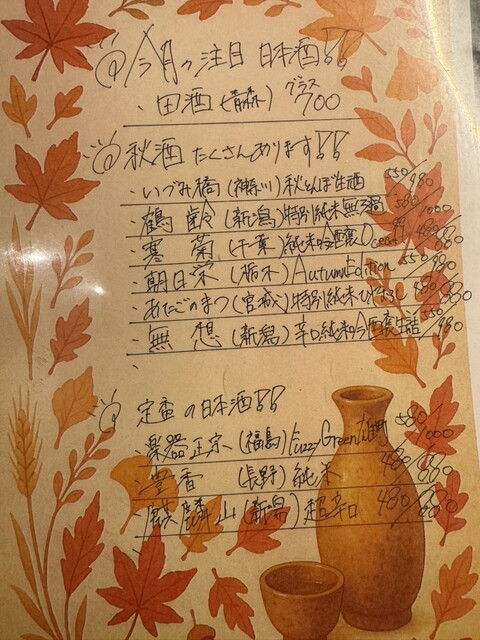 今月の注目 日本酒!!
・田酒 (青森) グラス 700
秋酒 たくさんあります!!
・いづみ橋 (神奈川) 秋とんぼ 生酒 550/980
・鶴齢 (新潟) 特別純米 無ろ過 580/1000
・寒菊 (千葉) 純米吟醸 Ocean99
・朝日栄 (栃木) Autumn Edition 550/980
・あたごのまつ (宮城) 特別純米 ひやおろし 480/880
・無想 (新潟) 辛口純米吟醸生詰 550/980
定番の日本酒!!
・楽器正宗 (福島) Fuzzy Green 雄町 580/1000
・豊香 (長野) 純米 480/880
・麒麟山 (新潟) 超辛口 480/880